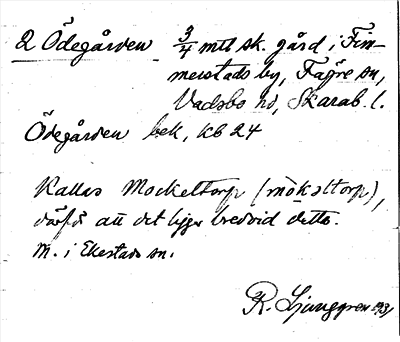 2 Ödegården 3/4 mtl sk. gård i Fim-
merstads by, Fägre sn,
Vadsbo hd, Skarab. l.
Ödegården bek, kb 24
Kallas Mockeltorp (mökəltorp),
därför att det ligger bredvid detta.
M. i Ekestads sn.
R. Ljunggren 1931